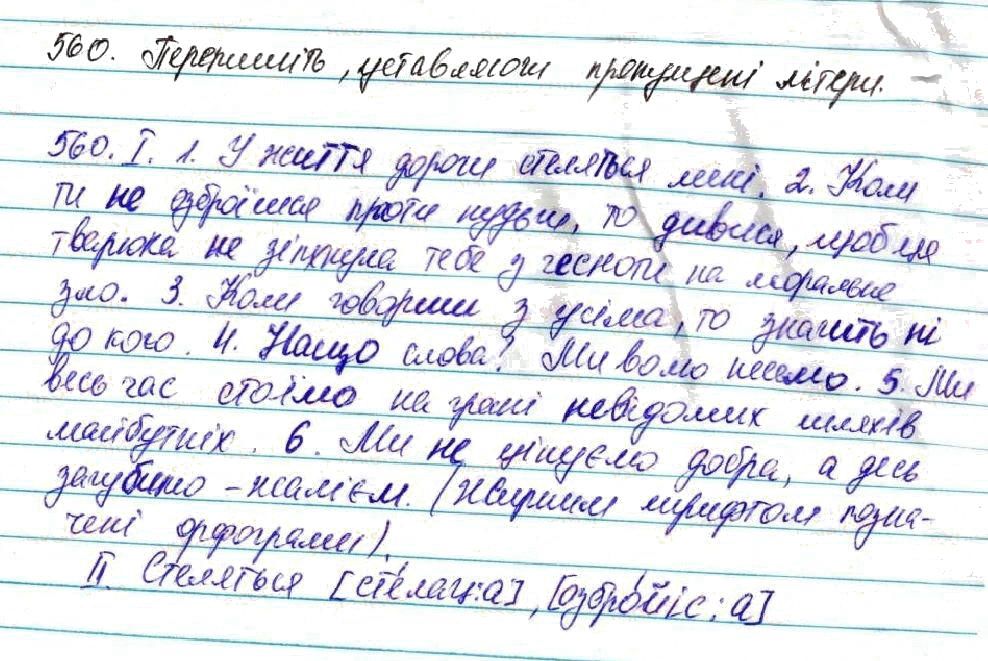 560. Перепишіть, уставляючи пропущені літери.
560. I. 1. У життя дороги стеляться мені. 2. Коли
ти не озброїшся проти нудьги, то дивися, щоб ця
тварюка не зіпхнула тебе з чесноти на моральне
зло. 3. Коли говориш з усіма, то значить ні
до кого. 4. Нащо слова? Ми волю несемо. 5. Ми
весь час стоїмо на грані невідомих шляхів
майбутніх. 6. Ми не цінуємо добра, а десь
загубимо - жалієм. (Жирним шрифтом позна-
чені орфограми).
II Стеляться [сте́лац:а], [озбро́йіс:а]